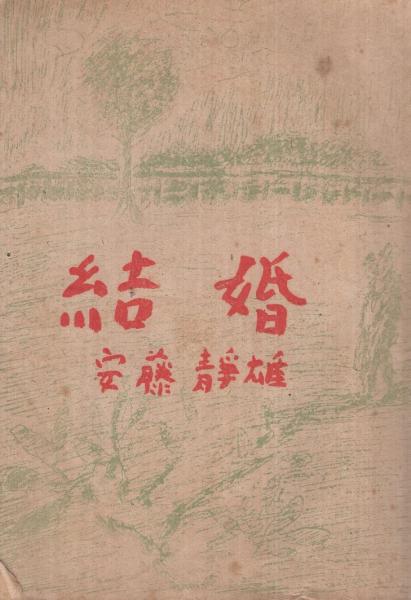 結婚
安藤靜雄